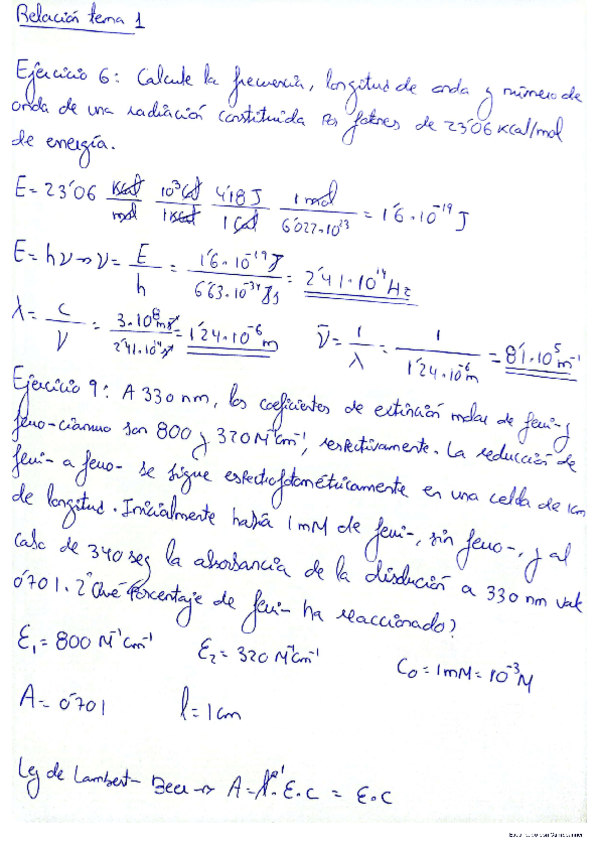 Relación tema 1
Ejercicio 6: Calcule la frecuencia, longitud de onda y número de
onda de una radiación constituida por fotones de 23'06 Kcal/mol
de energía.
E = 23'06 Kcal/mol · 10³ Cal/1 Kcal · 4'18 J/1 Cal · 1 mol/6'022·10²³ = 1'6·10⁻¹⁹ J
E = hν → ν = E/h = 1'6·10⁻¹⁹ J/6'63·10⁻³⁴ Js = 2'41·10¹⁴ Hz
λ = c/ν = 3·10⁸ m s⁻¹/2'41·10¹⁴ s⁻¹ = 1'24·10⁻⁶ m    ν̄ = 1/λ = 1/1'24·10⁻⁶ m = 8'1·10⁵ m⁻¹
Ejercicio 9: A 330 nm, los coeficientes de extinción molar de ferri- y
ferro-cianuro son 800 y 320 M⁻¹cm⁻¹, respectivamente. La reducción de
ferri- a ferro- se sigue espectrofotométricamente en una celda de 1cm
de longitud. Inicialmente había 1 mM de ferri-, sin ferro-, y al
cabo de 340 seg la absorbancia de la disolución a 330 nm vale
0'701. ¿Qué porcentaje de ferri- ha reaccionado?
Ɛ₁ = 800 M⁻¹cm⁻¹    Ɛ₂ = 320 M⁻¹cm⁻¹    C₀ = 1mM = 10⁻³ M
A = 0'701    l = 1 cm
Ley de Lambert-Beer → A = l·Ɛ·c = Ɛ·c